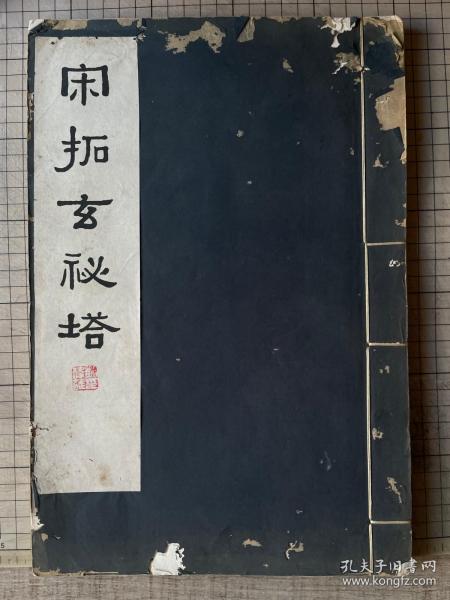 宋拓玄祕塔
孔夫子旧书网
www.kongfz.com